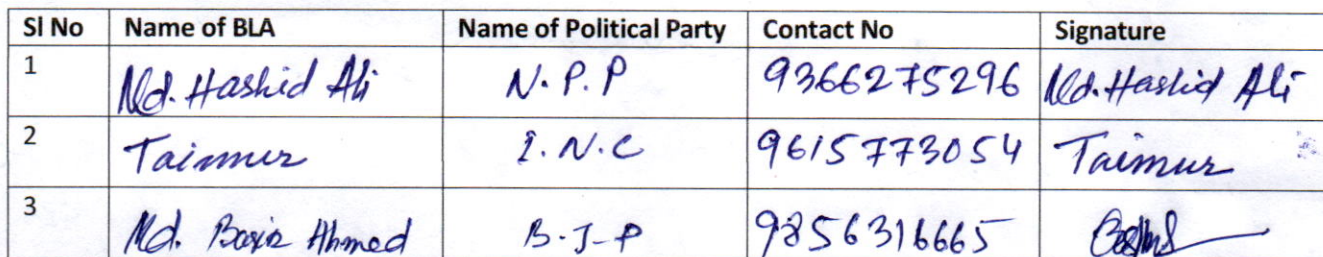 Sl No Name of BLA Name of Political Party Contact No Signature
1 Md. Hashid Ali N.P.P 9366275296 Md. Hashid Ali
2 Taimur I.N.C 9615773054 Taimur
3 Md. Ahmed B.J-P 9856316665